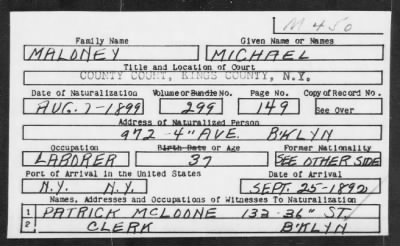 M 450
Family Name Given Name or Names
MALONEY MICHAEL
Title and Location of Court
COUNTY COURT, KINGS COUNTY, N.Y.
Date of Naturalization Volume or Bundle No. Page No. Copy of Record No.
AUG. 7-1899 299 149 See Over
Address of Naturalized Person
972 - 4" AVE. BKLYN
Occupation Birth Date or Age Former Nationality
LABORER 37 SEE OTHER SIDE
Port of Arrival in the United States Date of Arrival
N.Y. N.Y. SEPT. 25-1892
Names, Addresses and Occupations of Witnesses To Naturalization
1 PATRICK MCLOONE 132-36" ST.
2 CLERK BKLYN